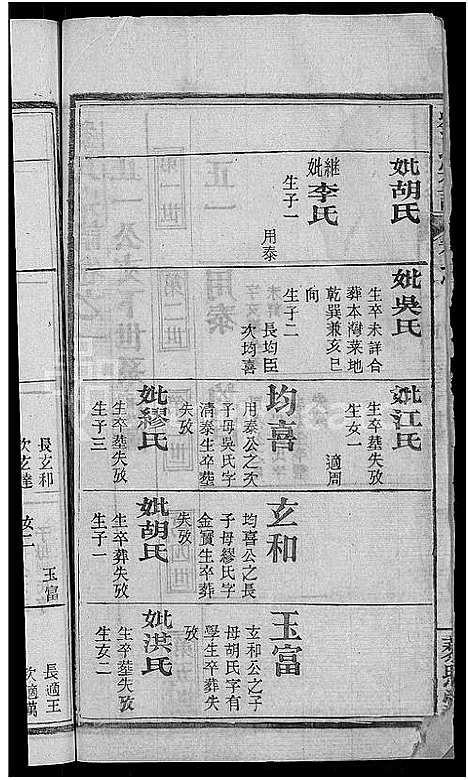 妣胡氏
継妣李氏
生子一
用泰
妣吳氏
生卒未詳合
葬本灣菜地
乾巽兼亥巳
向
生子二
長均臣
次均喜
妣江氏
生卒塟失攷
生女一
適周
均喜
用泰公之次
子母吳氏字
清泰生卒塟
失攷
妣繆氏
生卒塟失攷
生子三
長玄和
次玄達
女二
玄和
均喜公之長
子母繆氏字
金寳生卒葬
失攷
妣胡氏
生卒葬失攷
生子一
玉富
玉富
玄和公之子
母胡氏字有
學生卒葬失
攷
妣洪氏
生卒塟失攷
生女二
長適王
次適萬